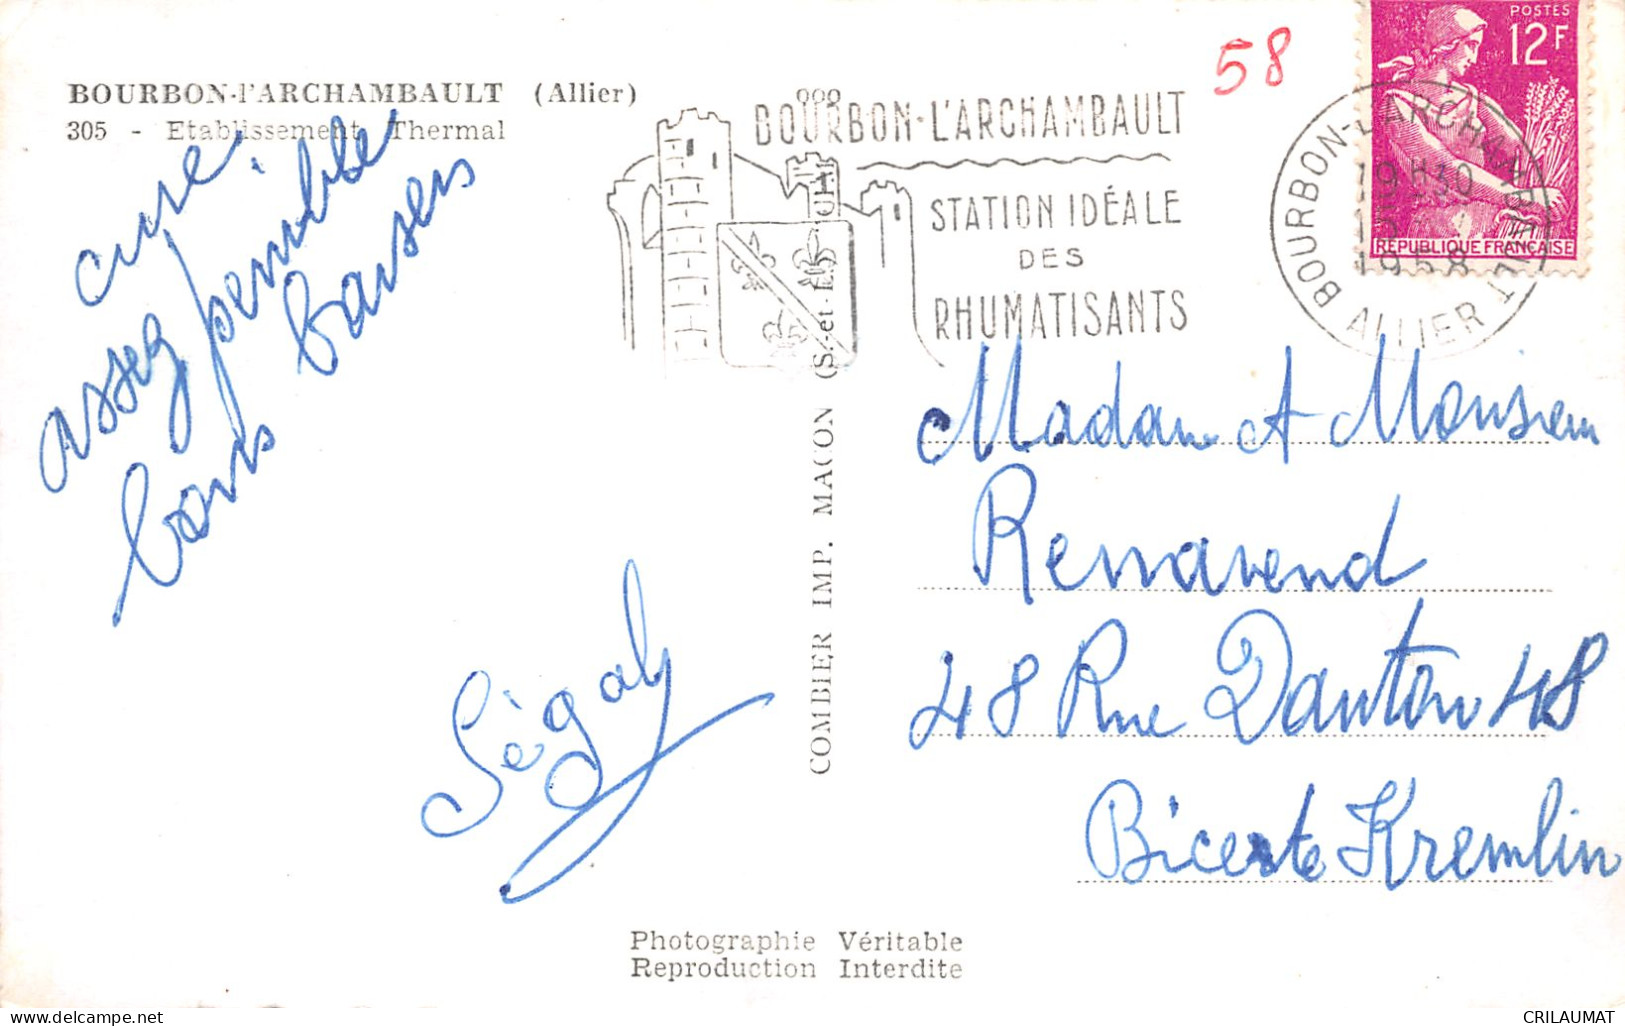 BOURBON-l'ARCHAMBAULT (Allier)
305 - Etablissement Thermal
cure
assez pénible
bons baisers
Ségaly
COMBIER IMP. MACON (S.-et-L.)
BOURBON-L'ARCHAMBAULT
STATION IDÉALE
DES
RHUMATISANTS
58
POSTES
12F
REPUBLIQUE FRANÇAISE
BOURBON-L'ARCHAMBAULT
19H30
1958
ALLIER
Madam et Monsieur
Rennavend
48 Rue Danton 48
Bicetre Kremlin
Photographie Véritable
Reproduction Interdite
CRILAUMAT